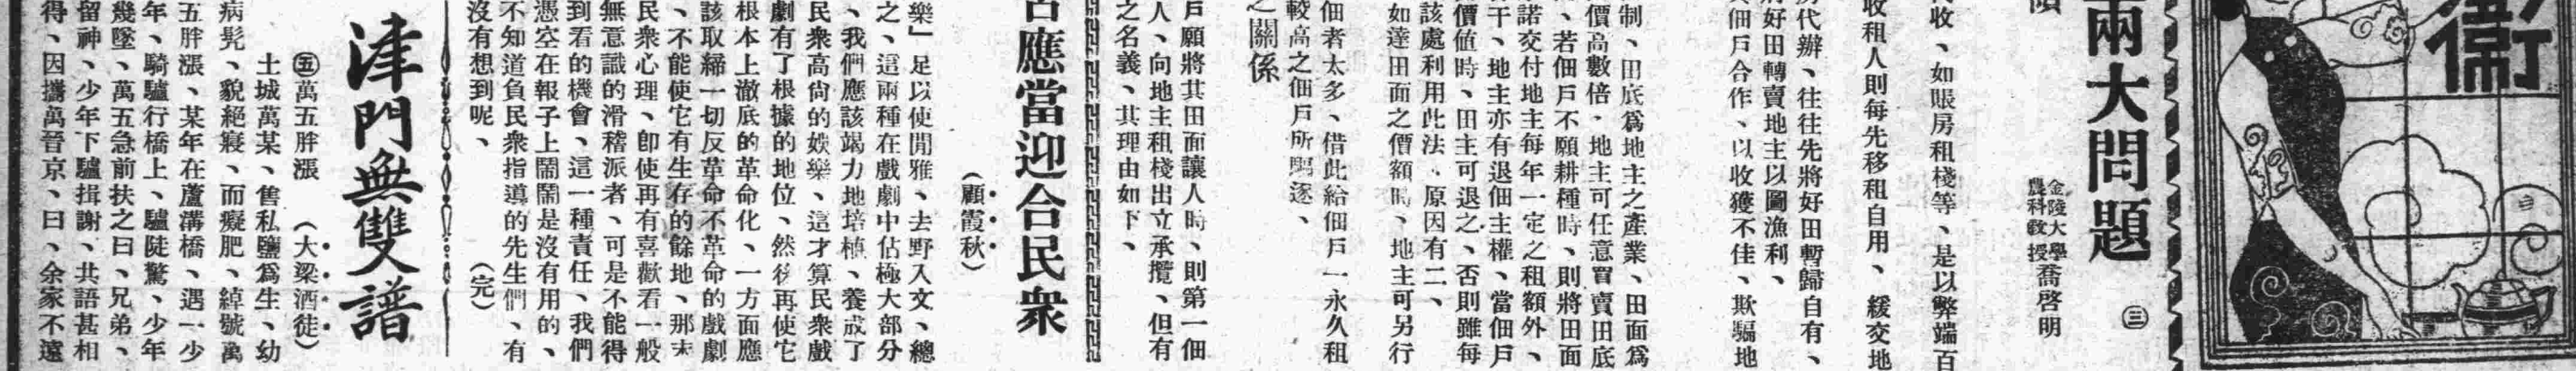 衛
兩大問題
㊂
金陵大學
農科教授
喬啓明
代收、如賬房租棧等、是以弊端百
收租人則每先移租自用、緩交地
代辦、往往先將好田暫歸自有、
將好田轉賣地主以圖漁利、
佃戶合作、以收獲不佳、欺騙地
制、田底爲地主之產業、田面爲
價高數倍、地主可任意買賣田底
、若佃戶不願耕種時、則將田面
諾交付地主每年一定之租額外、
干、地主亦有退佃主權、當佃戶
價值時、田主可退之、否則雖每
該處利用此法、原因有二、
如達田面之價額時、地主可另行
佃者太多、借此給佃戶一永久租
較高之佃戶所驅逐、
之關係
戶願將其田面讓人時、則第一佃
人、向地主租棧出立承攬、但有
之名義、其理由如下、
應當迎合民衆
（顧霞秋）
樂」足以使閒雅、去野入文、總
之、這兩種在戲劇中佔極大部分
、我們應該竭力地培植、養成了
民衆高尙的娛樂、這才算民衆戲
劇有了根據的地位、然後再使它
根本上澈底的革命化、一方面應
該取締一切反革命不革命的戲劇
、不能使它有生存的餘地、那末
民衆心理、卽使再有喜歡看一般
無意識的滑稽派者、可是不能得
到看的機會、這一種責任、我們
憑空在報子上鬧鬧是沒有用的、
不知道負民衆指導的先生們、有
沒有想到呢、
（完）
津門無雙譜
㊄萬五胖漲
（大梁酒徒）
土城萬某、售私鹽爲生、幼
病髡、貌絕寢、而癡肥、綽號萬
五胖漲、某年在蘆溝橋、遇一少
年、騎驢行橋上、驢陡驚、少年
幾墜、萬五急前扶之曰、兄弟、
留神、少年下驢揖謝、共語甚相
得、因攜萬晉京、曰、余家不遠